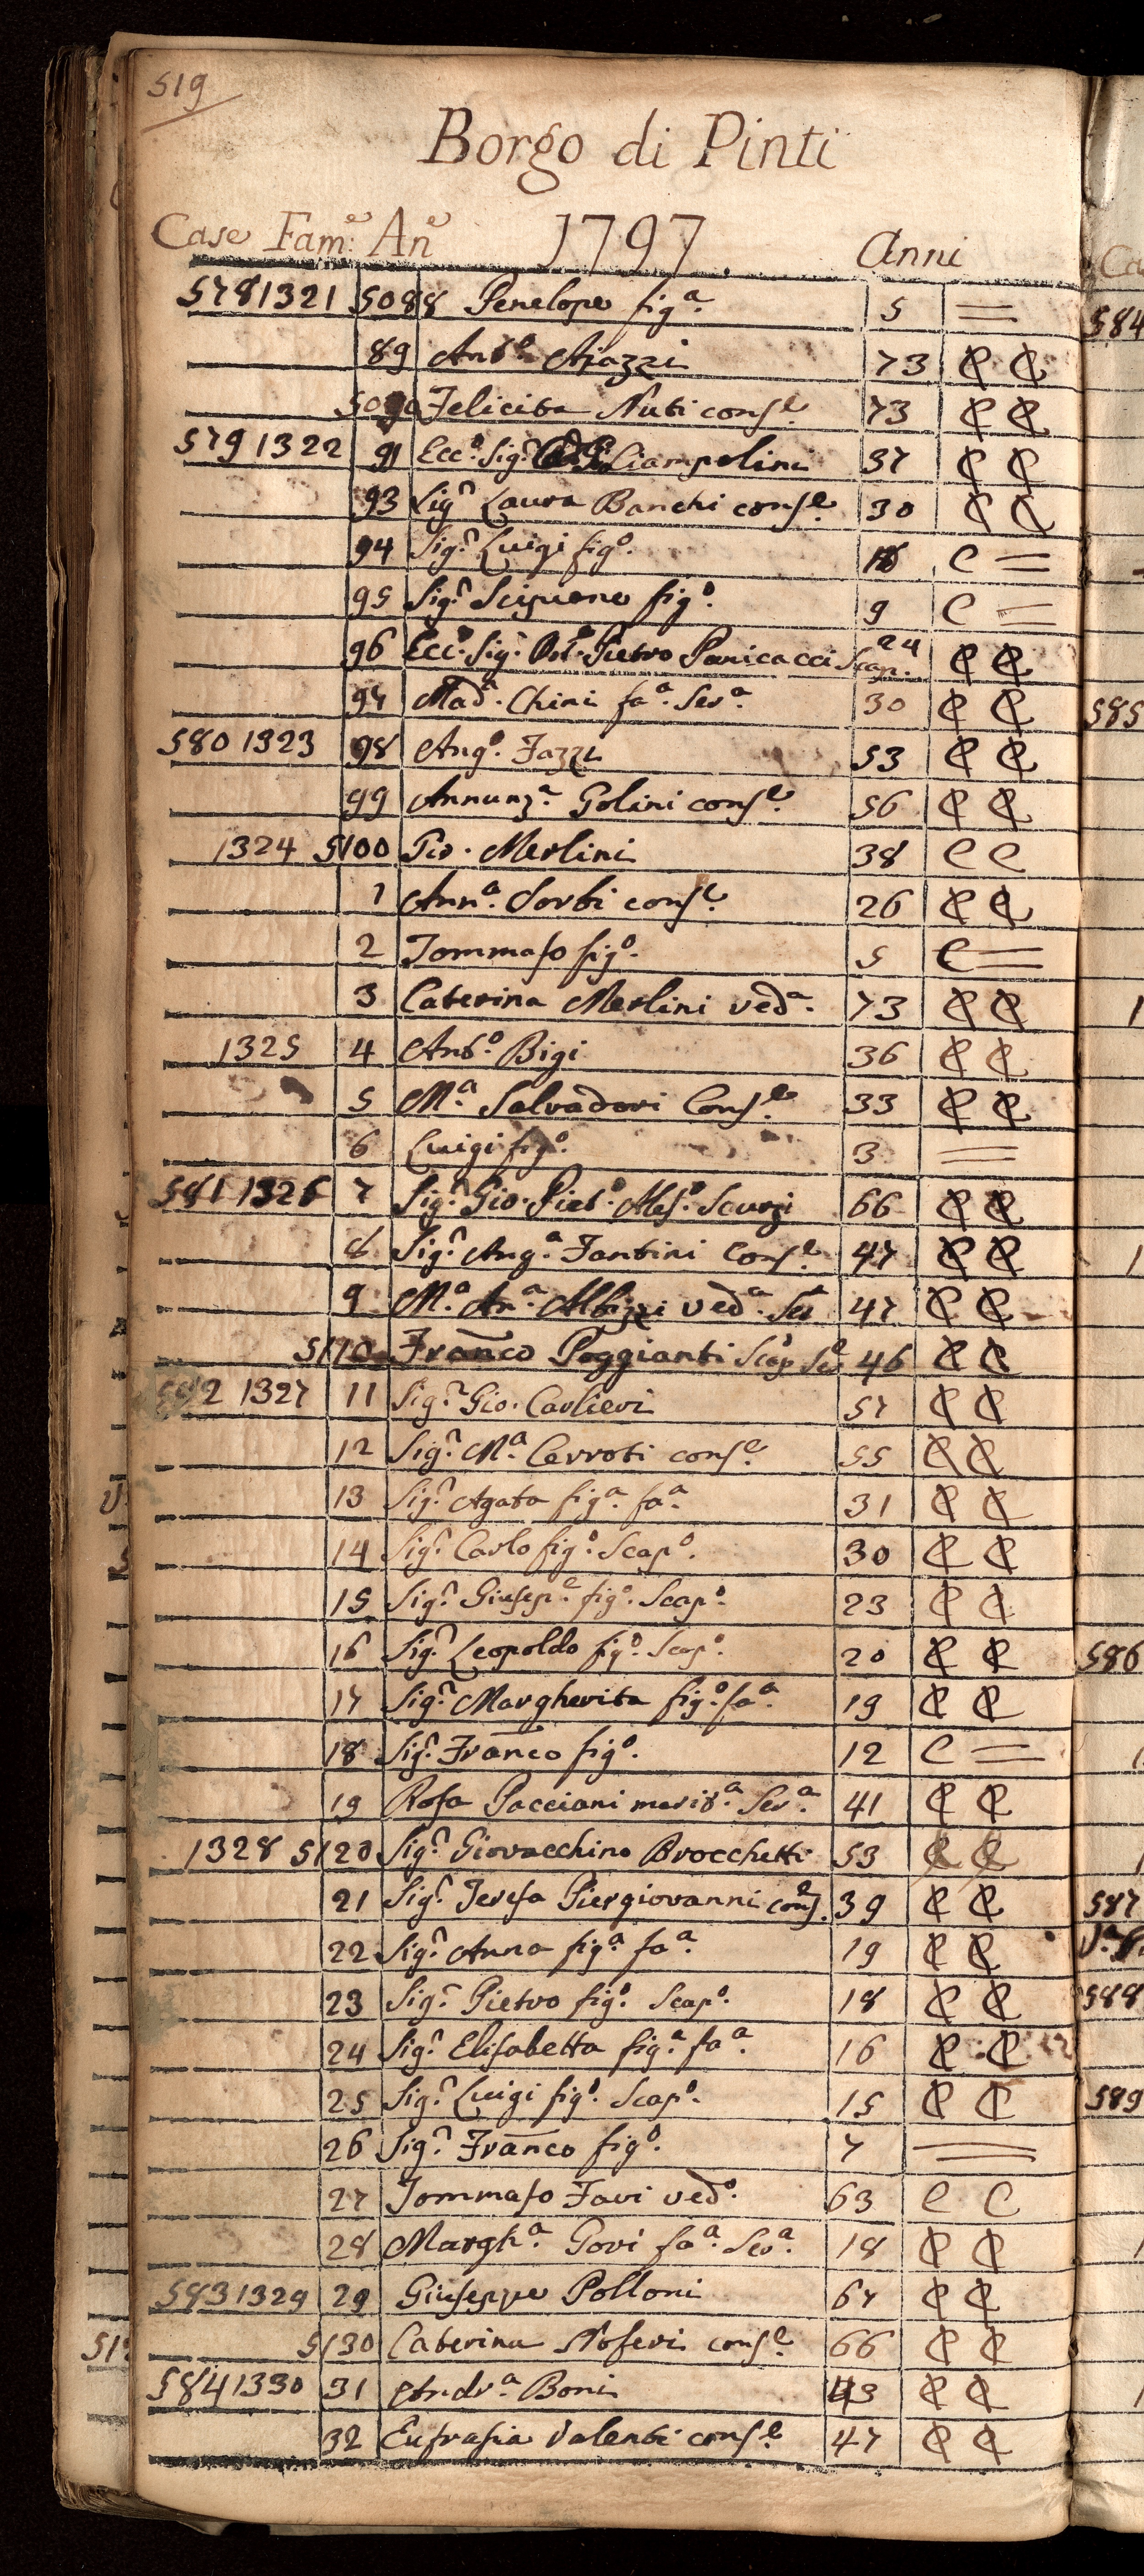 519
Borgo di Pinti
Case Fam.e An.e 1797. Anni
578 1321 5088 Penelope fig.a 5 =
89 Ant.o Ajazzi 73 C C
5090 Felicita Nuti cons.e 73 C C
579 1322 91 Ecc.o Sig.r Ciampolini 37 C C
93 Sig.r Laura Banchi cons.e 30 C C
94 Sig.r Luigi fig.o C =
95 Sig.r Scipione fig.o 9 C =
96 Ecc.o Sig.r Dot.o Pietro Panicacci Scap.o 24 C C
97 Mad.a Chini fa.a Ser.a 30 C C
580 1323 98 Ang.o Fazzi 53 C C
99 Annunz.a Golini cons.e 56 C C
1324 5100 Gio. Merlini 38 C C
1 Ann.a Sorbi cons.e 26 C C
2 Tommaso fig.o 5 C =
3 Caterina Merlini ved.a 73 C C
1325 4 Ant.o Bigi 36 C C
5 M.a Salvadori Cons.e 33 C C
6 Luigi fig.o 3 =
581 1326 7 Sig.r Gio. Piet.o Ales.o Scurzi 66 C C
8 Sig.r Ang.a Fantini Cons.e 47 C C
9 M.a An.a Albizzi ved.a Ser.a 47 C C
5110 Franco Poggianti Scap.o Ser.o 46 C C
582 1327 11 Sig.r Gio. Carlieri 57 C C
12 Sig.r M.a Cerroti cons.e 55 C C
13 Sig.r Agata fig.a fa.a 31 C C
14 Sig.r Carlo fig.o Scap.o 30 C C
15 Sig.r Giusep.e fig.o Scap.o 23 C C
16 Sig.r Leopoldo fig.o Scap.o 20 C C
17 Sig.r Margherita fig.o fa.a 19 C C
18 Sig.r Franco fig.o 12 C =
19 Rosa Pacciani marit.a Ser.a 41 C C
1328 5120 Sig.r Giovacchino Brocchetti 53 C C
21 Sig.r Teresa Piergiovanni cons.e 39 C C
22 Sig.r Anna fig.a fa.a 19 C C
23 Sig.r Pietro fig.o Scap.o 18 C C
24 Sig.r Elisabetta fig.a fa.a 16 C C
25 Sig.r Luigi fig.o Scap.o 15 C C
26 Sig.r Franco fig.o 7 =
27 Tommaso Favi ved.o 63 C C
28 Margh.a Govi fa.a Ser.a 18 C C
583 1329 29 Giuseppe Polloni 67 C C
5130 Caterina Noferi cons.e 66 C C
584 1330 31 Andr.a Boni 43 C C
32 Eufrasia Valenti cons.e 47 C C
584
585
586
587
588
589